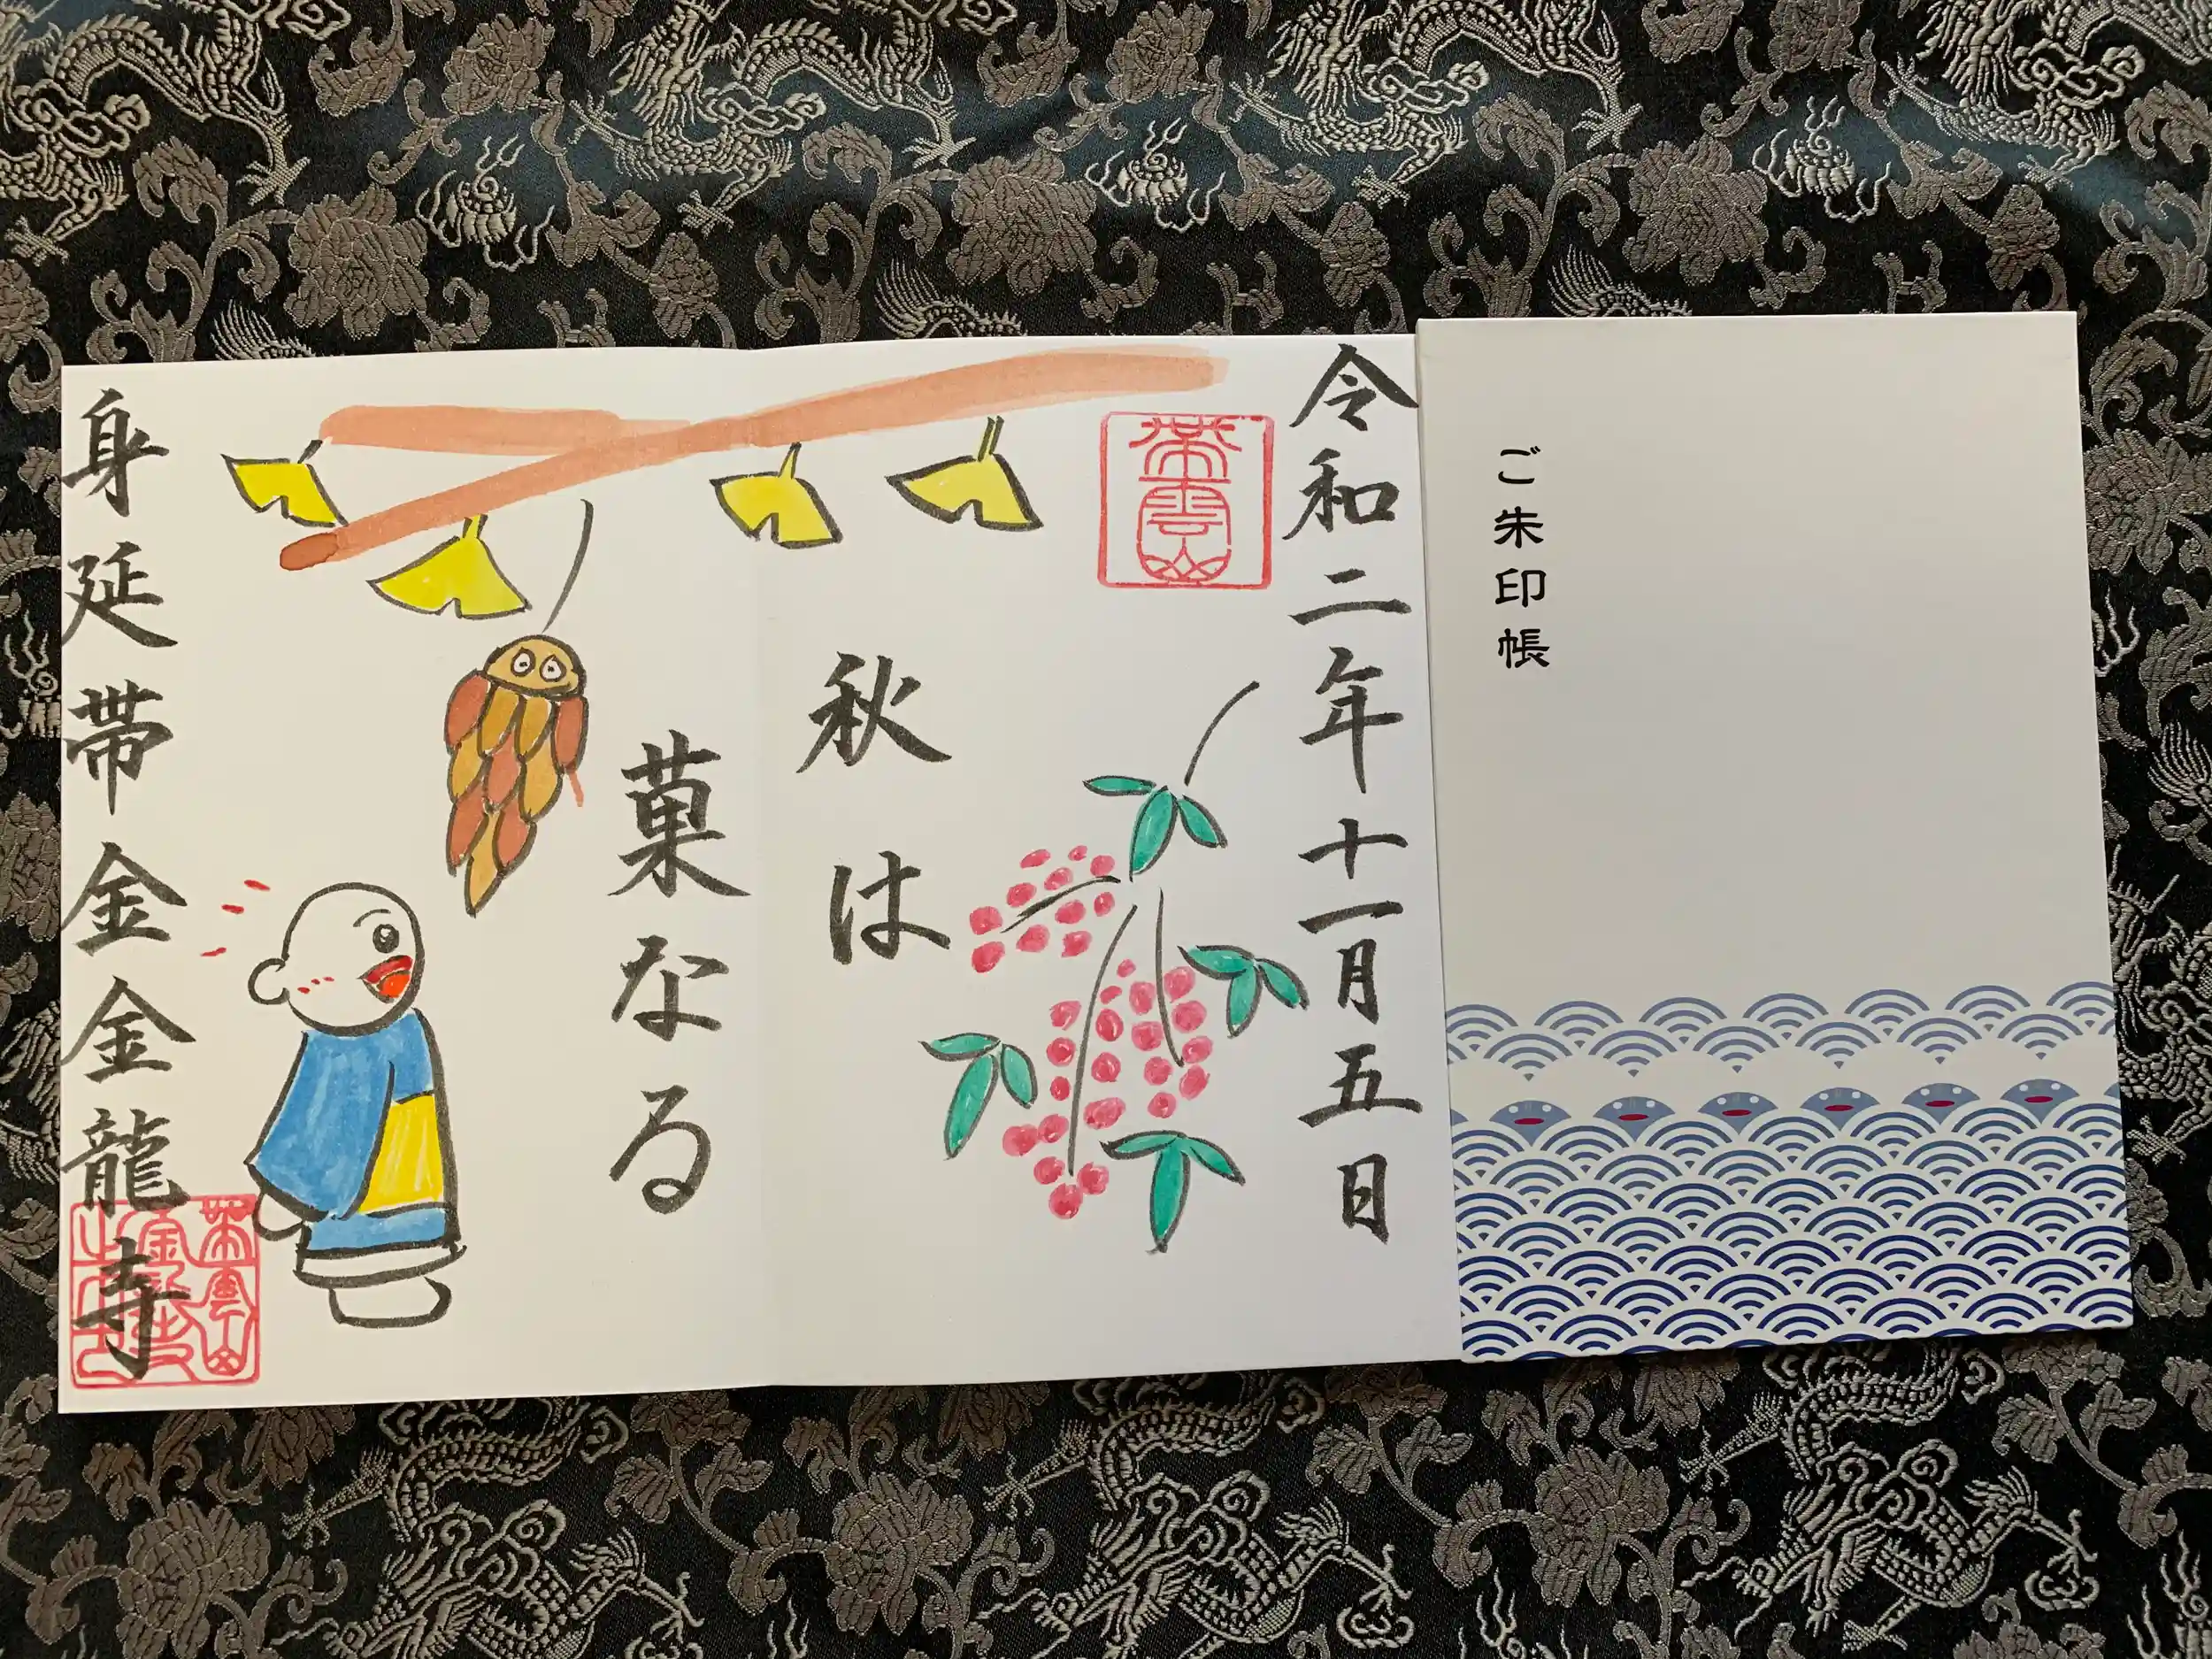 ご朱印帳
令和二年十一月五日
秋は
菓なる
身延帯金金龍寺
帯雲山